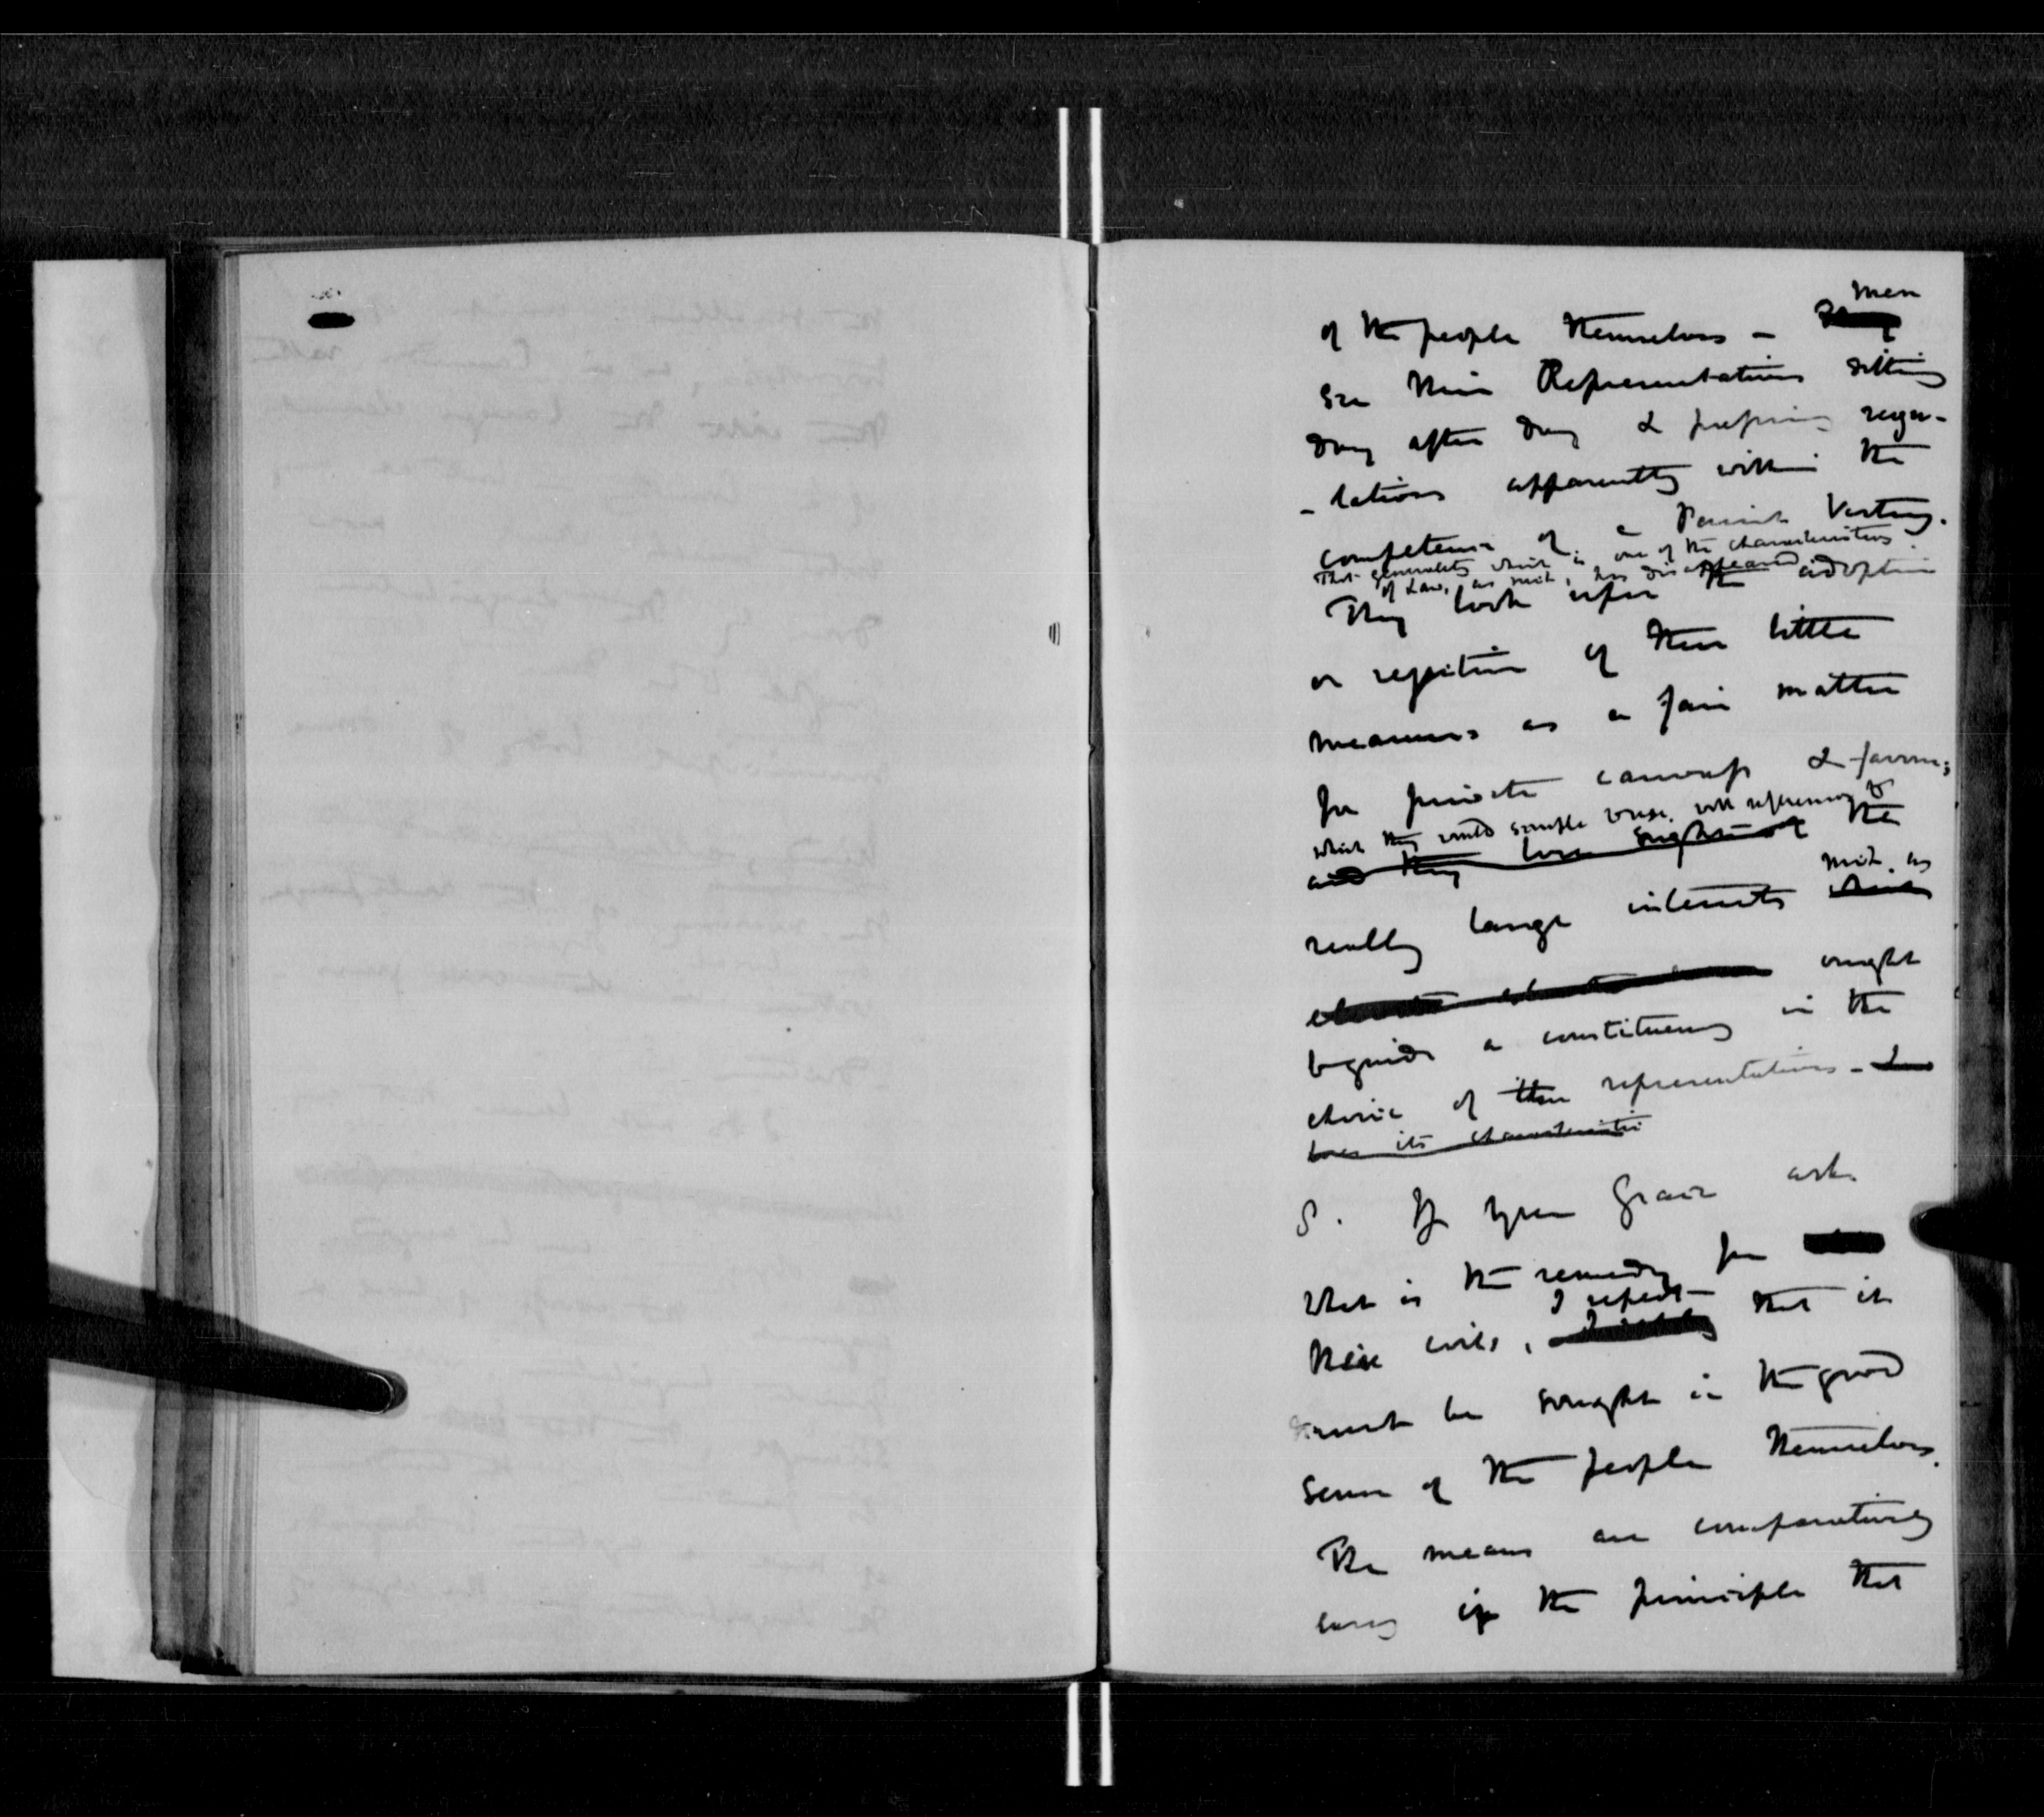 men
of the people themselves - They
see their Representatives sitting
day after day & proposing regu-
-lations apparently within the
competence of a Parish Vestry.
That generality which is one of the characteristics
of Law, as such, has disappeared
They look upon the adoption
or rejection of these little
measures as a fair matter
for private canvass & favour;
which they would scruple to use with reference to
and they lose sight of the
really large interests such as
which
ought
to guide a constituency in the
choice of their representatives - &
loses its characteristic
8. If your Grace ask
what is the remedy for
I repeat
these evils, that it
must be sought in the good
sense of the people themselves.
The means are comparatively
easy if the principle that